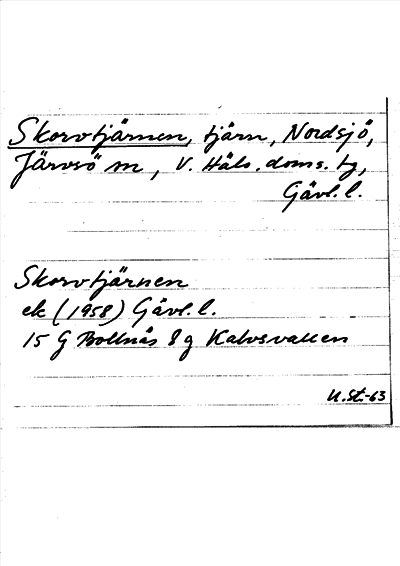 Skorvtjärnen, tjärn, Nordsjö,
Järvsö sn, V. Häls. doms. tg,
Gävl. l.
Skorvtjärnen
ek (1958) Gävl. l.
15 G Bollnäs 8 g Kalvsvallen
U.St.-63